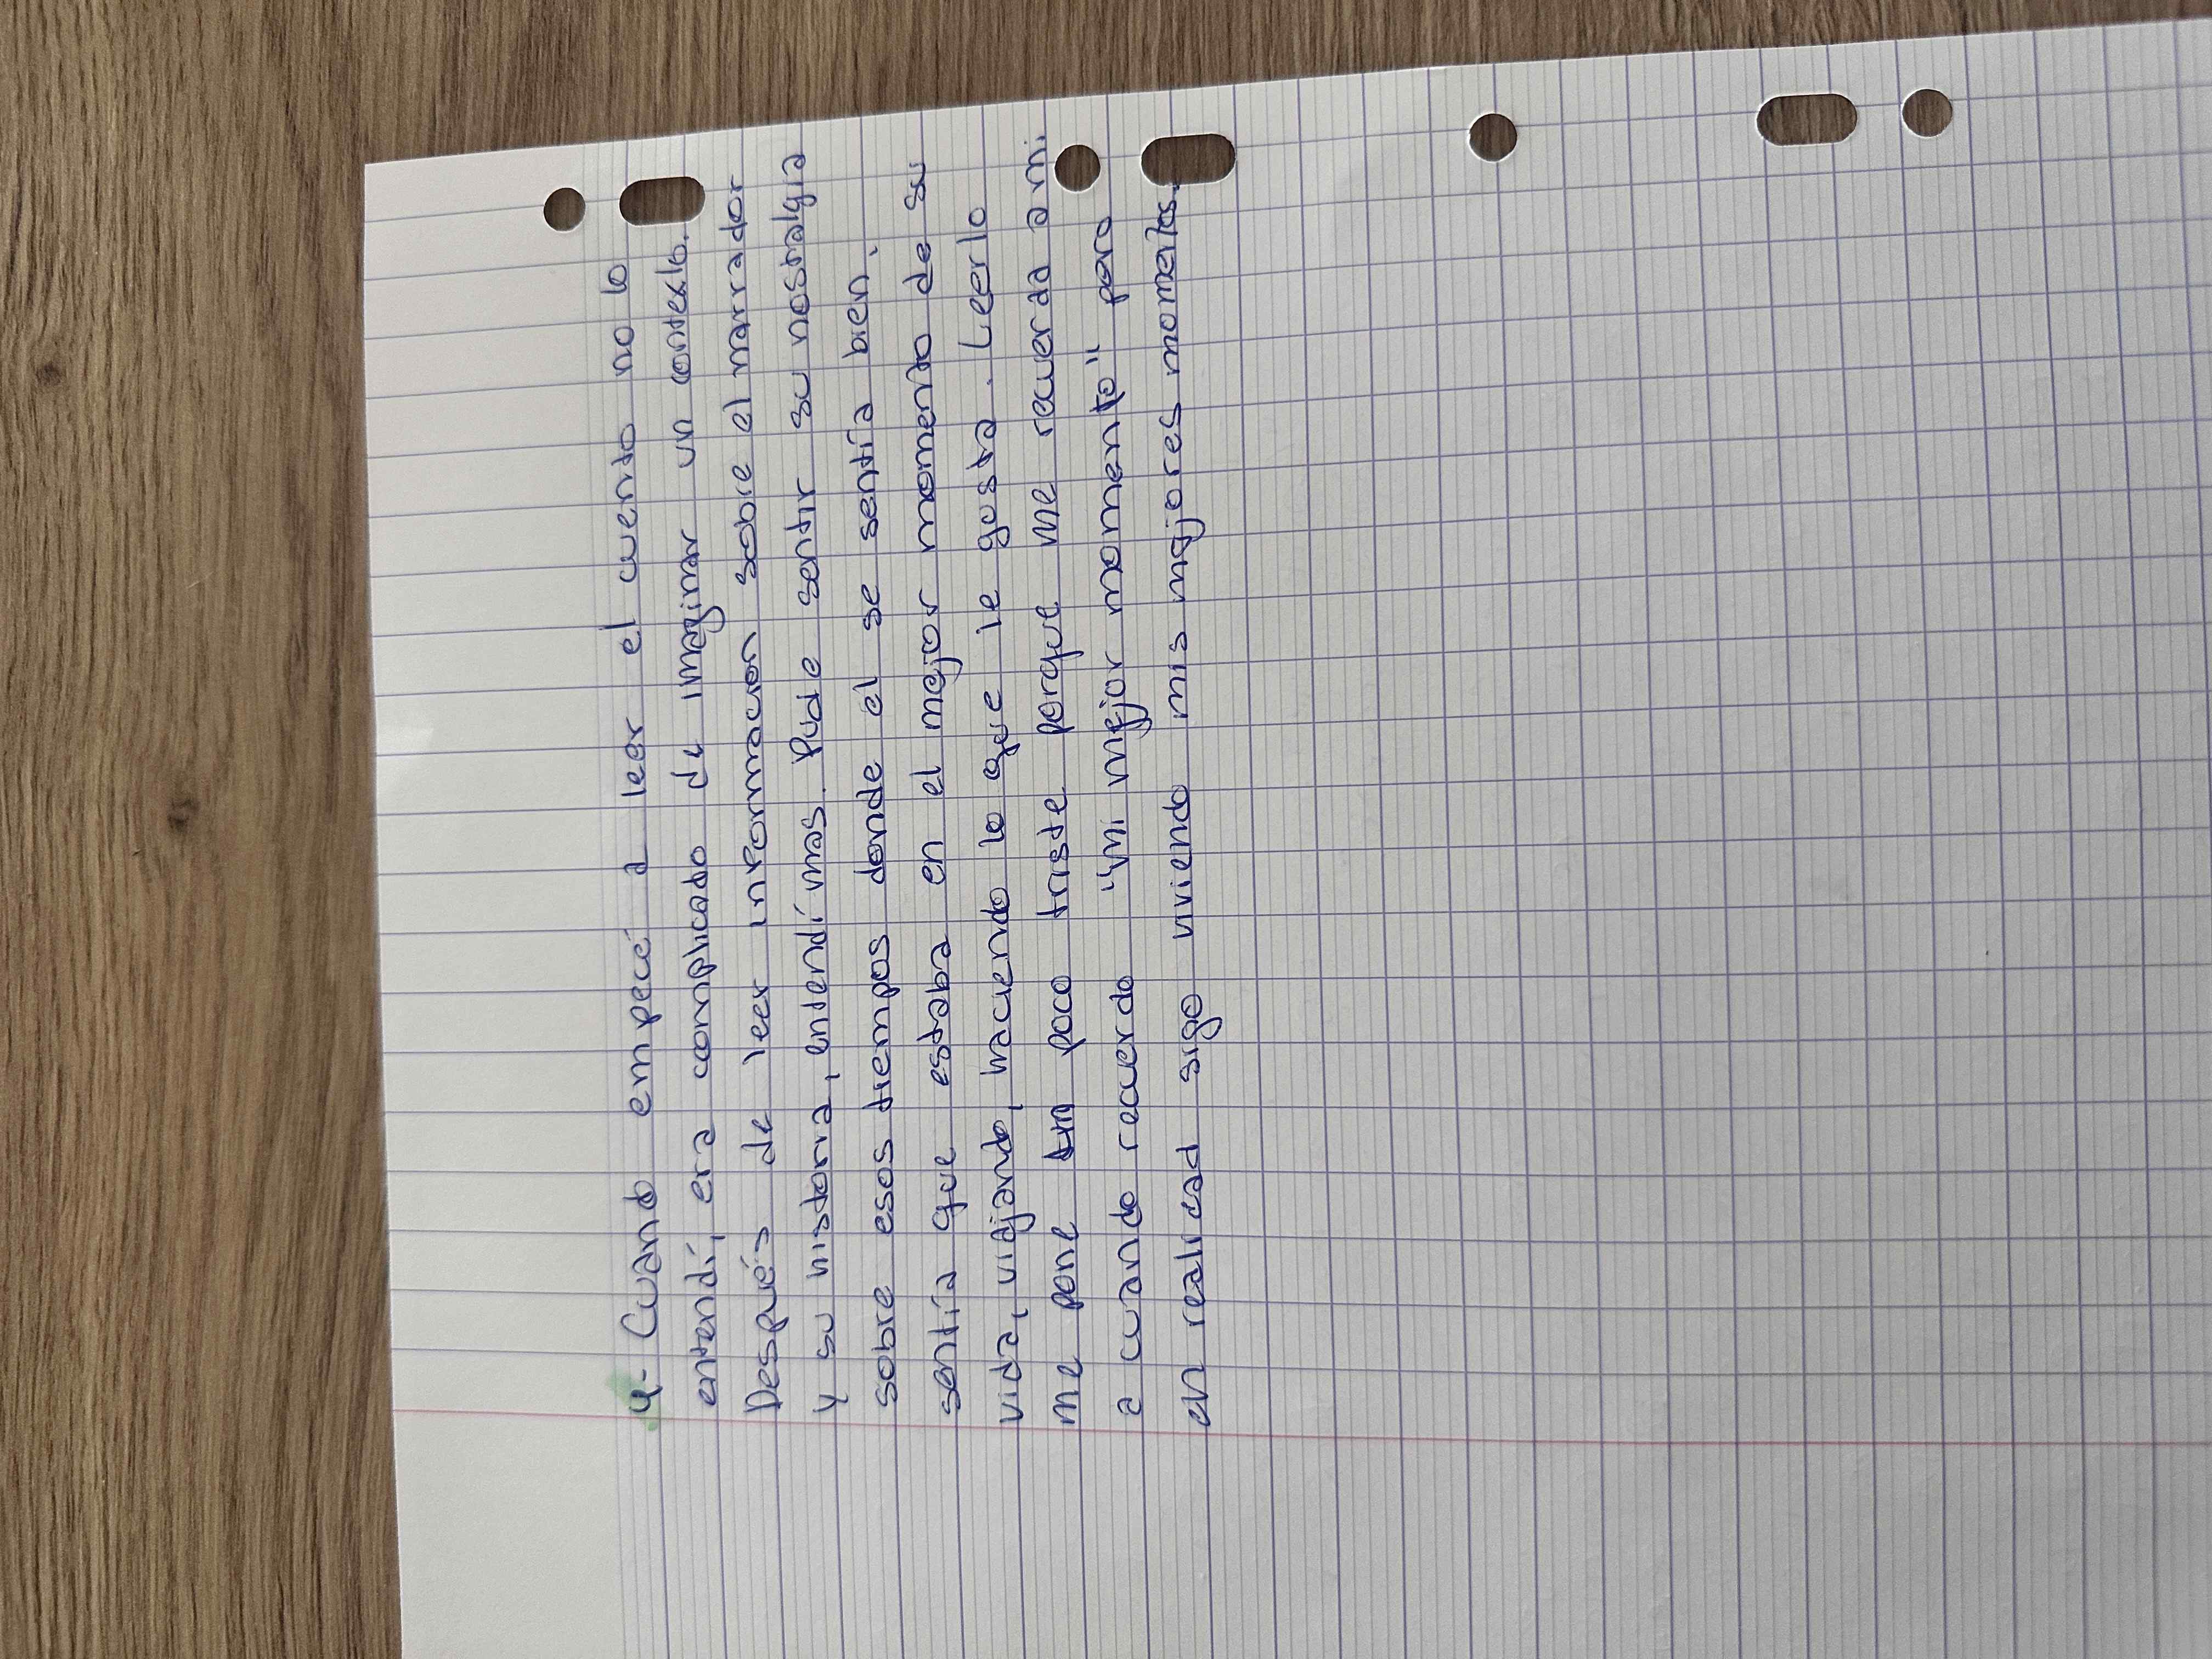 4- Cuando empecé a leer el cuento no lo
entendí, era complicado de imaginar un contexto.
Después de leer informacion sobre el narrador
y su historia, entendí mas. Pude sentir su nostalgia
sobre esos tiempos donde el se sentía bien,
sentía que estaba en el mejor momento de su
vida, viajando, haciendo lo que le gusta. Leerlo
me pone un poco triste porque me recuerda a mi.
a cuando recuerdo "mi mejor momento" pero
en realidad sigo viviendo mis mejores momentos.